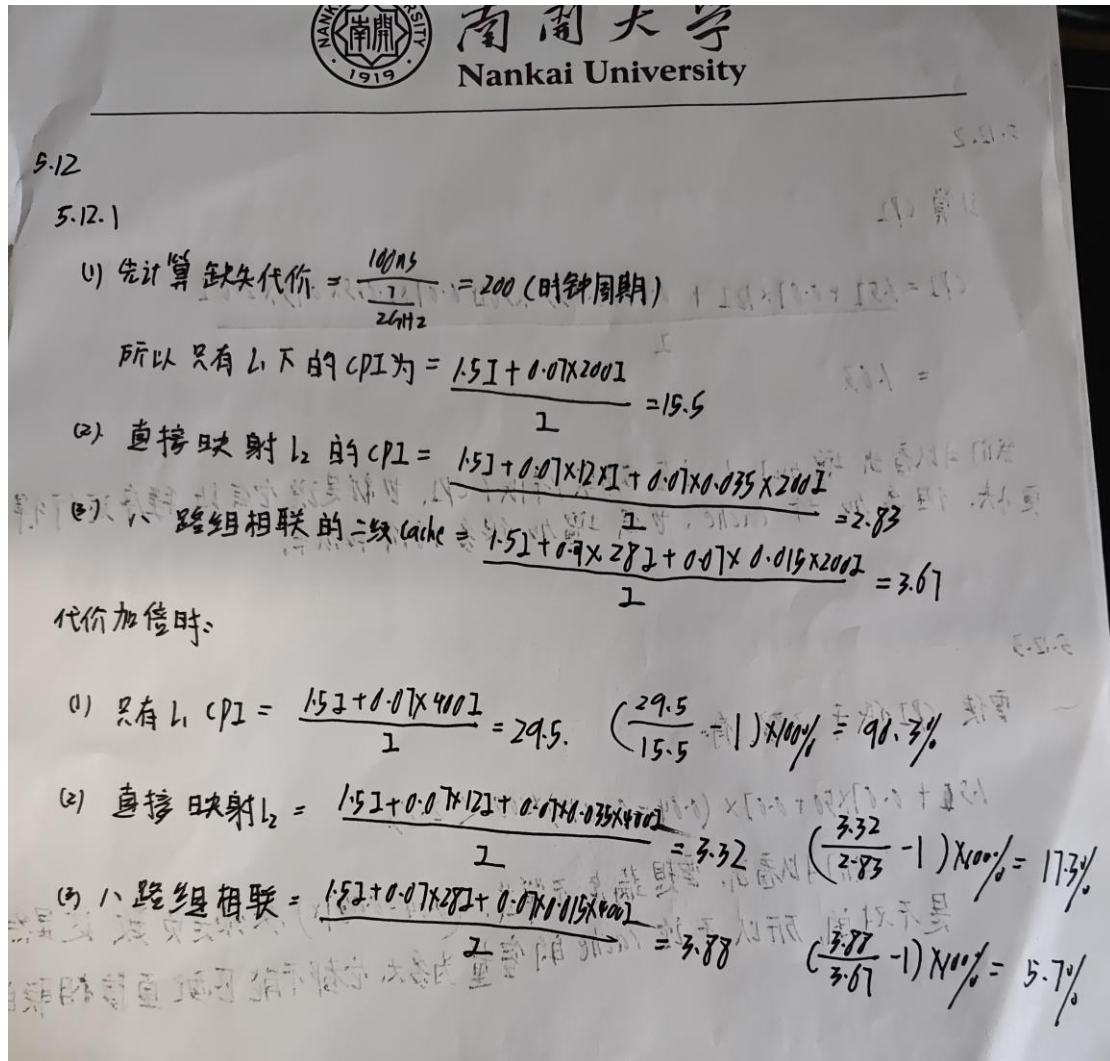 NANK
RSITY
南開
1919
南開大学
Nankai University
5.12
5.12.1
(1) 先计算 缺失代价 = 100ns / (1 / 2GHz) = 200 (时钟周期)
所以 只有 L1 下 的 CPI 为 = (1.5I + 0.07×200I) / I = 15.5
(2) 直接映射 L2 的 CPI = (1.5I + 0.07×12×I + 0.07×0.035×200I) / I = 2.83
(3) 八路组相联的二级 Cache = (1.5I + 0.07×28I + 0.07×0.015×200I) / I = 3.67
代价加倍时:
(1) 只有 L1 CPI = (1.5I + 0.07×400I) / I = 29.5. (29.5/15.5 - 1)×100% = 90.3%
(2) 直接映射 L2 = (1.5I + 0.07×12I + 0.07×0.035×400I) / I = 3.32 (3.32/2.83 - 1)×100% = 17.3%
(3) 八路组相联 = (1.5I + 0.07×28I + 0.07×0.015×400I) / I = 3.88 (3.88/3.67 - 1)×100% = 5.7%